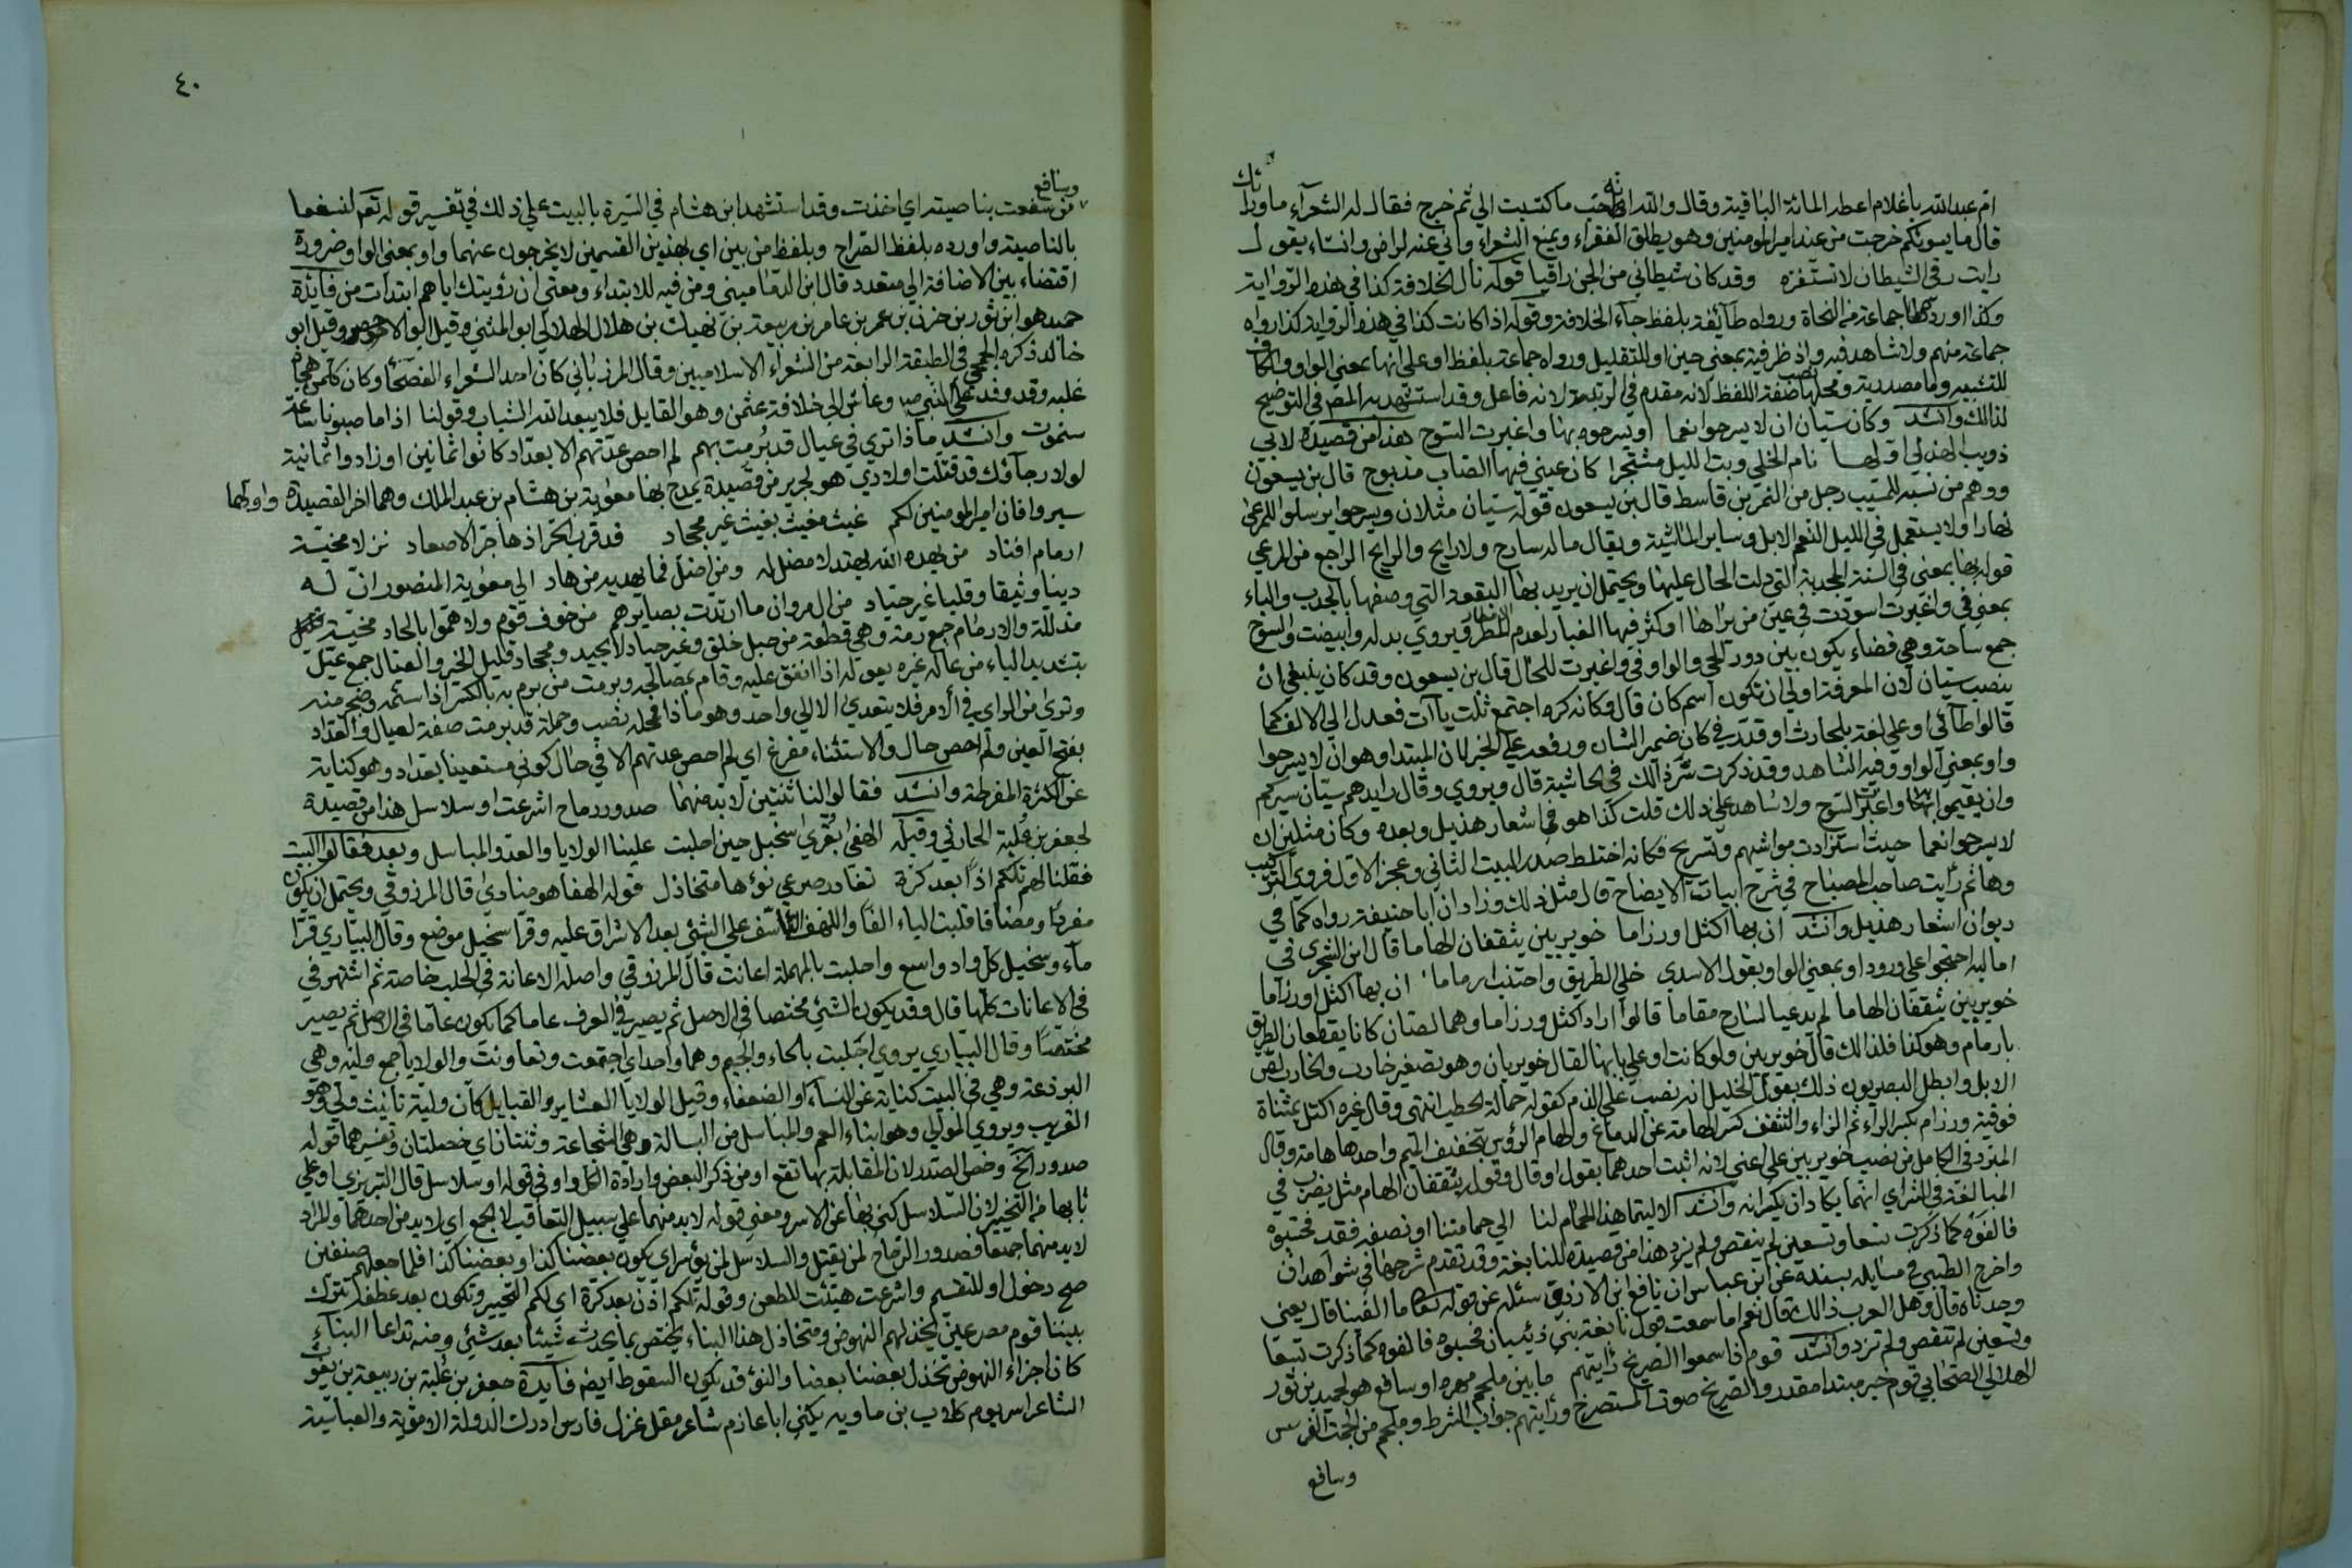 ام عبد الله يا غلام اعطه المائة الباقية وقال والله انها لاحب ما كتسبت الي ثم خرج فقال له الشعرآء ما وراك
قال ما يسوئكم خرجت من عند امير المومنين وهو يطلق الفقراء ويمنع الشعراء واني عنه لراض وانشاء يقول
رايت رقى الشيطان لا تستفزه وقد كان شيطاني من الجن راقيا قوله نال الخلافة كذا في هذه الرواية
وكذا اورده جماعة من النحاة ورواه طائفة بلفظ جآء الخلافة وقوله اذا كانت كذا في هذه الرواية كذا رواه
جماعة منهم ولا شاهد فيه واذ ظرفية بمعني حين او للتقليل ورواه جماعة بلفظ او على انها بمعني الواو والكاف
للتشبيه وما مصدرية ومحلها نصب صفة اللفظ لانه مقدم في الرتبة لانه فاعل وقد استشهد به المصـ في التوضيح
لذالك وانشد وكان سيان ان لا يسرحوا نعما او يسرحوه بها واغبرت السوح هذا من قصيدة لابي
ذويب الهذلي اولها نام الخلي وبت الليل مشتجرا كان عيني فيها الصاب مذبوح قال بن يسعون
ووهم من نسبه للمسيب رجل من النمر بن قاسط قال بن يسعون قوله سيان مثلان ويسرحوا يرسلوا للمرعى
نهارا ولا يستعمل في الليل النعم الابل وساير الماشية ويقال ما له سارح ولا رايح والرايح الراجع من المرعي
قوله بها بمعني في السنة المجدبة التي دلت الحال عليها ويحتمل ان يريد بها البقعة التي وصفها بالجدب والباء
بمعني في واغبرت اسودت في عين من يراها او كثر فيها الغبار لعدم المطر ويروي بدله وابيضت والسوح
جمع ساحة وهي فضاء يكون بين دور الحي والواو في واغبرت للحال قال بن يسعون وقد كان ينبغي ان
ينصب سيان لان المعرفة اولي ان تكون اسم كان قال وكانه كره اجتمع ثلث يآت فعدل الي الالف كما
قالوا طآئي او علي لغة بلحارث او قدر في كان ضمير الشان ورفعه علي الخبر لمان المبتدا وهو ان لا يسرحوا
واو بمعني الواو وفيه الشاهد وقد ذكرت سر ذلك في الحاشية قال ويروي وقال رايدهم سيان سيركم
وان يقيموا بها واغبرت السوح ولا شاهد علي ذلك قلت كذا هو في اشعار هذيل وبعده وكان مثلين ان
لا يسرحوا نعما حيث استرادت مواشيهم وتسريح فكانه اختلط صدر البيت الثاني وعجز الاول فروي
وها ثم رايت صاحب المصباح في شرح ابيات الايضاح قال مثل ذلك وزاد ان ابا حنيفة رواه كما في
ديوان اشعار هذيل وانشد ان بها اكتل او رزاما خويربين ينقفان الهاما قال ابن الشجري في
اماليه احتجوا على ورود او بمعني الواو بقول الاسدي خلي الطريق واجتنب ارماما ان بها اكتل او رزاما
خويربين ينقفان الهاما لم يدعيا لسارح مقاما قالوا اراد اكتل ورزاما وهما لصان كانا يقطعان الطريق
بارمام وهو كذا فلذالك قال خويربين ولو كانت او علي بابها لقال خويربان وهو تصغير خارب والخارب لص
الابل وابطل البصريون ذلك بقول الخليل انه نصب علي الذم كقوله حمالة الحطب انتهى وقال غيره اكتل بمثناة
فوقية ورزام بكسر الرآء ثم الزاء والنقف كسر الهامة عن الدماغ والهام الرؤس بتخفيف الميم واحدها هامة وقال
المبرد في الكامل من نصب خويربين علي اعني لانه اثبت احدهما بقوله او قال وقوله ينقفان الهام مثل يضرب في
المبالغة في الشر اي انهما يكادان يكسرانه وانشد الا ليتما هذا الحمام لنا الي حمامتنا او نصفه فقد فحسبوه
فالفوه كما ذكرت تسعا وتسعين لم ينقص ولم يزد هذا من قصيدة للنابغة وقد تقدم شرحها في شواهد ان
واخرج الطستي في مسايله بسنده عن ابن عباس ان نافع ابن الازرق سئله عن قوله تعا ما الفينا قال يعني
وجدناه قال وهل العرب ذالك قال نعم اما سمعت قول نابغة بني ذبيان فحسبوه فالفوه كما ذكرت تسعا
وتسعين لم تنقص ولم تزد وانشد قوم اذا سمعوا الصريخ رايتهم ما بين ملجم مهره او سافع هو لحميد بن ثور
الهلالي الصحابي قوم خبر مبتدا مقدر والصريخ صوت المستصرخ ورايتهم جواب الشرط وملجم من الجمت الفرس
وسافع
٤٠
وسافع
من سفعت بناصيته اي اخذت وقد استشهد ابن هشام في السيرة بالبيت علي ذلك في تفسير قوله تعـ لنسفعا
بالناصية واورده بلفظ الصراح وبلفظ من بين اي بهذين القسمين لا يخرجون عنهما واو بمعني الواو ضرورة
اقتضاء بين الاضافة الي متعدد قال ابن الدماميني ومن فيه للابتداء ومعني ان رؤيتك اياهم ابتدات من فايدة
حميد هو ابن ثور بن حزن بن عمر بن عامر بن ربيعة بن نهيك بن هلال الهلالي ابو المثني وقيل ابو الاخضر وقيل ابو
خالد ذكره الجمحي في الطبقة الرابعة من الشعراء الاسلاميين وقال المرزباني كان احد الشعراء الفصحا وكان كل من هجاه
غلبه وقد وفد علي النبي صـ وعاش الي خلافة عثمن وهو القايل فلا يبعد الله الشباب وقولنا اذا ما صبونا ساعة
سنموت وانشد ماذا تري في عيال قد برمت بهم لم احص عدتهم الا بعداد كانوا ثمانين او زادوا ثمانية
لولا رجآؤك قد قتلت اولادي هو لجرير من قصيدة يمدح بها معوية بن هشام بن عبد الملك وهما اخر القصيدة واولها
سيروا فان امير المومنين لكم غيث مغيث بغيث غير مجحاد قد قرب الحر اذ هاج الاصعاد نزلا مخيسة
ارمام افناد من يهده الله يهتد لا مضل له ومن اضل فما يهديه من هاد الي معوية المنصور ان له
دينا وثيقا وقلبا غير حياد من ال مروان ما ارتدت بصايرهم من خوف قوم ولا هموا بالحاد مخيسة
مذللة والارمام جمع رمة وهي قطعة من حبل خلق وغير حياد لا يحيد ومجحاد قليل الخير والعيال جمع عيل
بتشديد الياء من عاله غيره يعوله اذا انفق عليه وقام بمصالحه وبرمت من برم به بالكسر اذا سئمه وضجر منه
وتري من الراي في الامر فلا يتعدي الا الي واحد وهو ماذا فمحله نصب وجملة قد برمت صفة لعيال والعداد
بفتح العين ولم احص حال والاستثناء مفرغ اي لم احص عدتهم الا في حال كوني مستعينا بعداد وهو كناية
عن الكثرة المفرطة وانشد فقالوا لنا ثنتين لا بد منهما صدور رماح اشرعت او سلاسل هذا من قصيدة
لجعفر بن علبة الحارثي وقبله الهفى بقرى سحبل حين احلبت علينا الولايا والعدو المباسل وبعد فقالوا البيت
فقلنا لهم تلكم اذا بعد كرة تغادر صرعي نؤها متخاذل قوله الهفا هو منادى قال المرزوقي ويحتمل ان يكون
مفردا ومضافا قلبت الياء الفا واللهف التاسف علي الشئ بعد الاشراق عليه وقرا سحبل موضع وقال البياري قرا
مآء وسحبل كل واد واسع واحلبت بالمهملة اعانت قال المرزوقي واصله الاعانة في الحلب خاصة ثم اشتهر في
في الاعانات كلها قال وقد يكون الشئ مختصا في الاصل ثم يصير في العرف عاما كما يكون عاما في الاصل ثم يصير
مختصا وقال البياري يروي اجلبت بالحاء والجيم وهما واحد اي اجتمعت وتعاونت والولايا جمع ولية وهي
البرذعة وهي في البيت كناية عن النسآء او الضعفاء وقيل الولايا العشاير والقبايل كان ولية تانيث ولي وهو
القريب ويروي الموالي وهو ابناء العم والمباسل من البسالة وهي الشجاعة وثنتان اي خصلتان وتفسيرهما قوله
صدور الخ وخص الصدر لان المقابلة بها تقع او من ذكر البعض وارادة الكل واو في قوله او سلاسل قال التبريزي او علي
بابها من التخيير لان السلاسل كني بها عن الاسر ومعني قوله لا بد منهما علي سبيل التعاقب لا الجمع اي لا بد من احدهما والمراد
لا بد منهما جميعا فصدور الرماح لمن يقتل والسلاسل لمن يؤسر اي يكون بعضنا كذا وبعضنا كذا فلما جعلهم صنفين
صح دخول او للتقسيم واشرعت هيئت للطعن وقوله تلكم اذن بعد كرة اي لكم التخيير وتكون بعد عطفة تترك
بيننا قوم مصرعين يخذلهم النهوض ومتخاذل هذا البناء يختص بما يحدث شيئا بعد شئ ومنه تداعا البنآء
كان اجزاء النهوض تخذل بعضنا بعضا والنؤ قد يكون السقوط ايضـ فايدة جعفر بن علبة بن ربيعة بن يغوث
الشاعر اسر يوم كلاب بن معاوية يكني ابا عازم شاعر مقل غزل فارس ادرك الدولة الاموية والعباسية